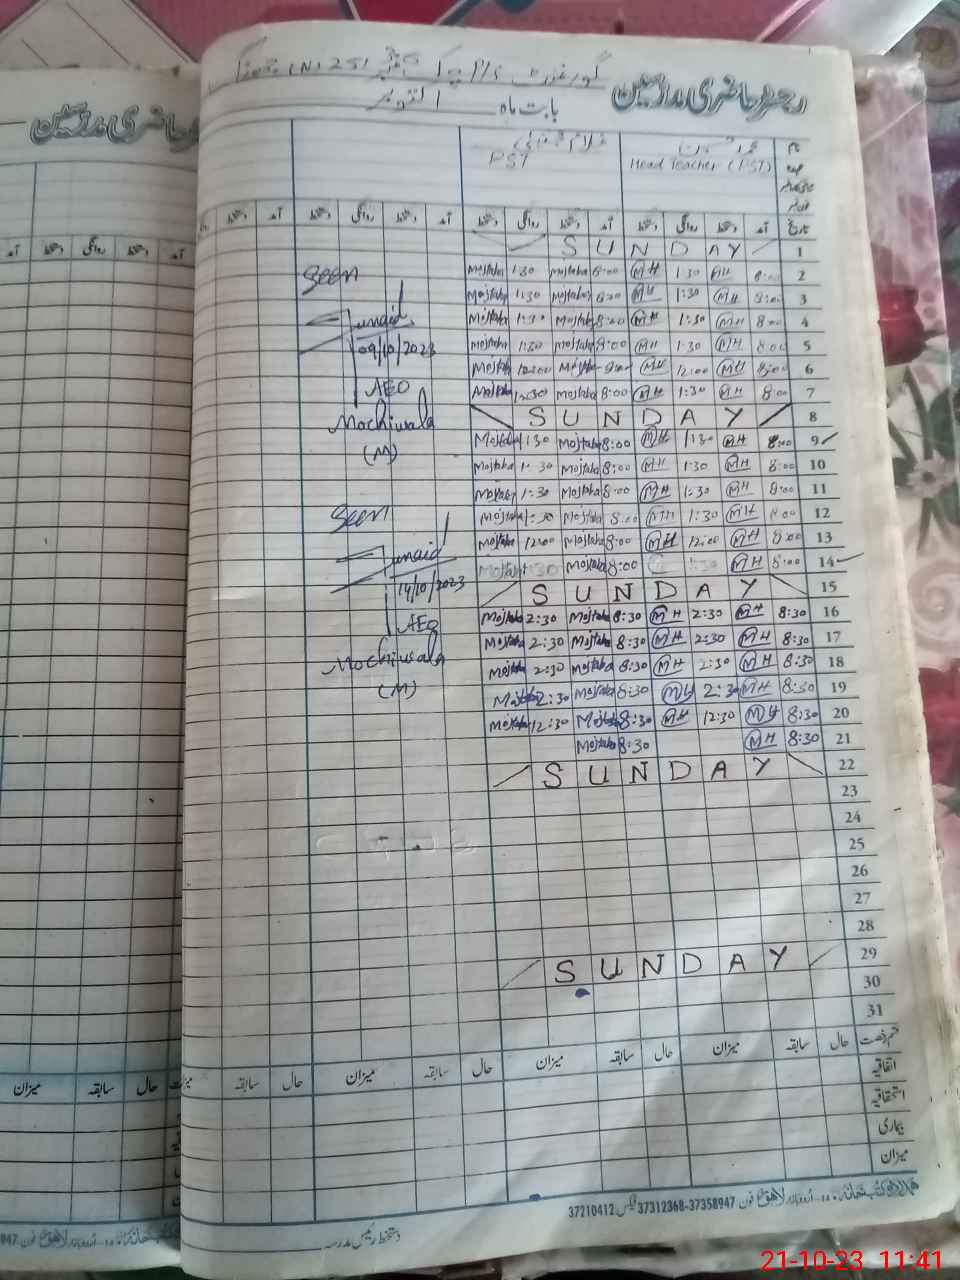 رجسٹر حاضری مدرسین
بابت ماہ اکتوبر
نام
عہدہ Head Teacher (PST) PST
تاریخ آمد دستخط روانگی دستخط آمد دستخط روانگی دستخط آمد دستخط روانگی دستخط آمد
1 SUNDAY
2 8:00 MH 1:30 MH 8:00 Mojtaba 1:30 Mojtaba
3 8:00 MH 1:30 MH 8:00 Mojtaba 1:30 Mojtaba
4 8:00 MH 1:30 MH 8:00 Mojtaba 1:30 Mojtaba
5 8:00 MH 1:30 MH 8:00 Mojtaba 1:30 Mojtaba
6 8:00 MH 12:00 MH 8:00 Mojtaba 12:00 Mojtaba
7 8:00 MH 1:30 MH 8:00 Mojtaba Mojtaba
8 SUNDAY
9 8:00 MH 1:30 MH 8:00 Mojtaba 1:30 Mojtaba
10 8:00 MH 1:30 MH 8:00 Mojtaba 1:30 Mojtaba
11 8:00 MH 1:30 MH 8:00 Mojtaba 1:30 Mojtaba
12 8:00 MH 1:30 MH 8:00 Mojtaba 1:30 Mojtaba
13 8:00 MH 12:00 MH 8:00 Mojtaba 12:00 Mojtaba
14 8:00 MH 8:00 Mojtaba 1:30 Mojtaba
15 SUNDAY
16 8:30 MH 2:30 MH 8:30 Mojtaba 2:30 Mojtaba
17 8:30 MH 2:30 MH 8:30 Mojtaba 2:30 Mojtaba
18 8:30 MH 2:30 MH 8:30 Mojtaba 2:30 Mojtaba
19 8:30 MH 2:30 MH 8:30 Mojtaba 2:30 Mojtaba
20 8:30 MH 12:30 MH 8:30 Mojtaba 12:30 Mojtaba
21 8:30 MH 8:30 Mojtaba
22 SUNDAY
23
24
25
26
27
28
29 SUNDAY
30
31
Seen
Junaid
09/10/2023
AEO
Mochiwala
(M)
Seen
Junaid
14/10/2023
AEO
Mochiwala
(M)
قسم رخصت حال سابقہ میزان حال سابقہ میزان حال سابقہ میزان حال سابقہ
اتفاقیہ
استحقاقیہ
بیماری
میزان
اردو بازار لاہور فون 37358947-37312368 فیکس 37210412
دستخط رئیس مدرسہ
رجسٹر حاضری مدرسین
آمد دستخط روانگی دستخط آمد
حال سابقہ میزان
21-10-23 11:41